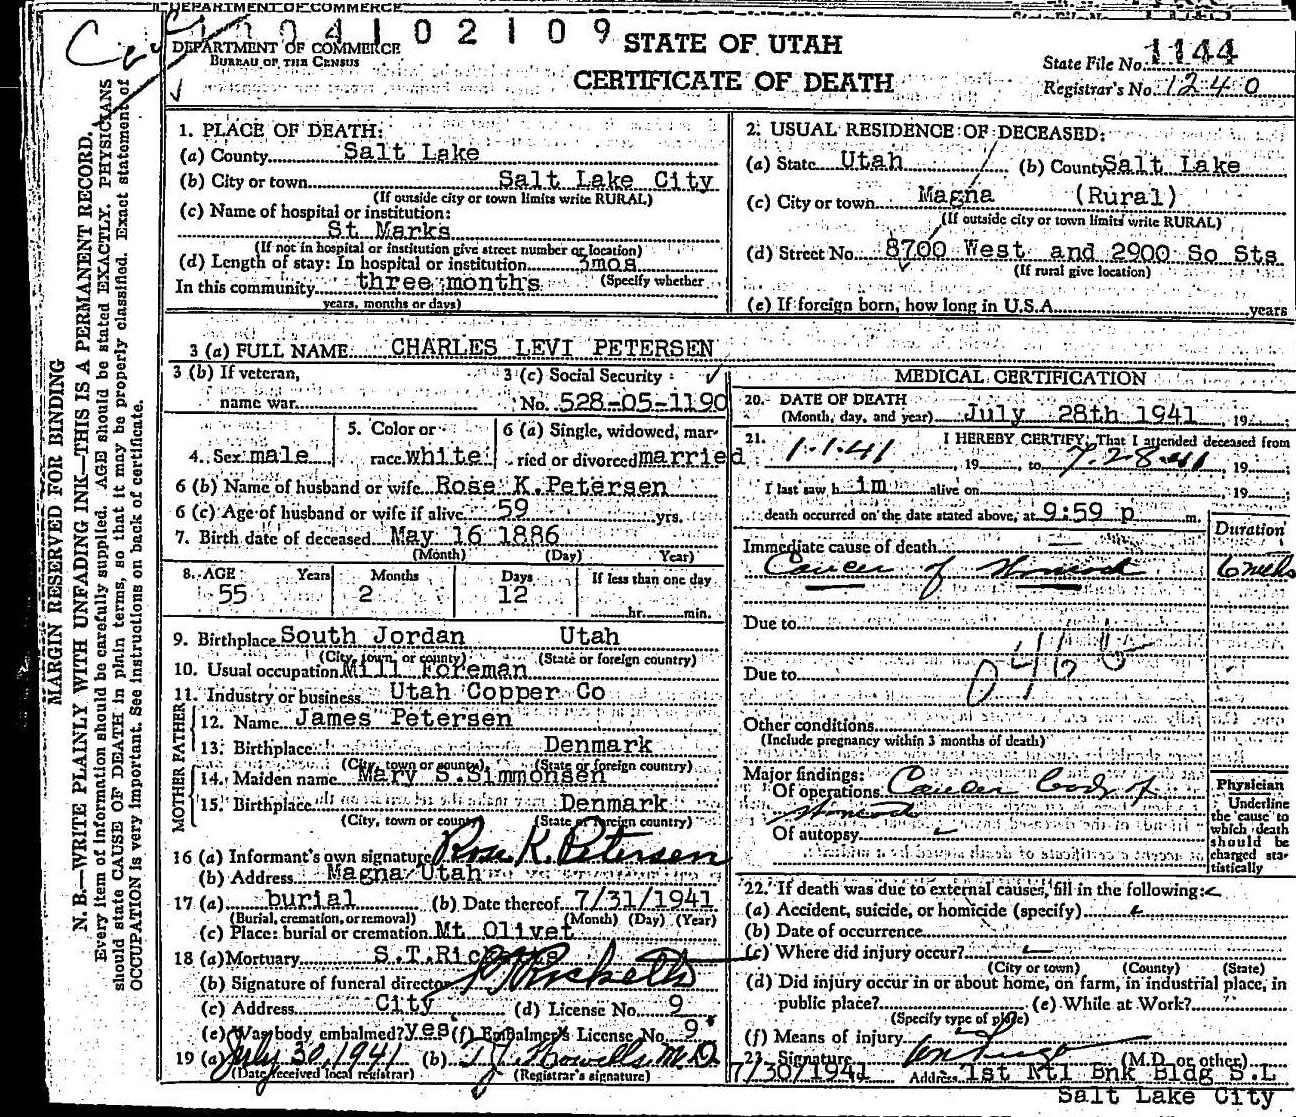 DEPARTMENT OF COMMERCE
04102109
DEPARTMENT OF COMMERCE
BUREAU OF THE CENSUS
STATE OF UTAH
CERTIFICATE OF DEATH
State File No. 1144
Registrar's No. 1240
MARGIN RESERVED FOR BINDING
N. B.—WRITE PLAINLY WITH UNFADING INK—THIS IS A PERMANENT RECORD.
Every item of information should be carefully supplied. AGE should be stated EXACTLY. PHYSICIANS
should state CAUSE OF DEATH in plain terms, so that it may be properly classified. Exact statement of
OCCUPATION is very important. See instructions on back of certificate.
1. PLACE OF DEATH:
(a) County Salt Lake
(b) City or town Salt Lake City
(If outside city or town limits write RURAL)
(c) Name of hospital or institution:
St Marks
(If not in hospital or institution give street number or location)
(d) Length of stay: In hospital or institution 3mos
(Specify whether
In this community three months
years, months or days)
2. USUAL RESIDENCE OF DECEASED:
(a) State Utah (b) County Salt Lake
(c) City or town Magna (Rural)
(If outside city or town limits write RURAL)
(d) Street No. 8700 West and 2900 So Sts
(If rural give location)
(e) If foreign born, how long in U.S.A. years
3 (a) FULL NAME CHARLES LEVI PETERSEN
3 (b) If veteran,
name war
3 (c) Social Security
No. 528-05-1190
4. Sex male
5. Color or
race white
6 (a) Single, widowed, mar-
ried or divorced married
6 (b) Name of husband or wife Rose K.Petersen
6 (c) Age of husband or wife if alive 59 yrs.
7. Birth date of deceased May 16 1886
(Month) (Day) Year)
8. AGE Years Months Days If less than one day
55 2 12
hr. min.
9. Birthplace South Jordan Utah
(City, town, or county) (State or foreign country)
10. Usual occupation Mill Foreman
11. Industry or business Utah Copper Co
FATHER
12. Name James Petersen
13. Birthplace Denmark
(City, town or county) (State or foreign country)
MOTHER
14. Maiden name Mary S.Simmonsen
15. Birthplace Denmark
(City, town or county) (State or foreign country)
16 (a) Informant's own signature Rose K. Petersen
(b) Address Magna Utah
17 (a) burial (b) Date thereof 7/31/1941
(Burial, cremation, or removal) (Month) (Day) (Year)
(c) Place: burial or cremation Mt Olivet
18 (a) Mortuary S.T.Ricketts
(b) Signature of funeral director
(c) Address City (d) License No. 9
(e) Was body embalmed? yes (f) Embalmer's License No. 9
19 (a) July 30, 1941 (b) M.D.
(Date received local registrar) (Registrar's signature)
MEDICAL CERTIFICATION
20. DATE OF DEATH
(Month, day, and year) July 28th 1941, 19
21. I HEREBY CERTIFY, That I attended deceased from
1.1.41, 19 , to 7.28.41, 19
I last saw him alive on , 19
death occurred on the date stated above, at 9:59 p m.
Duration
Immediate cause of death
Cancer of stomach 6 weeks
Due to
046 b
Due to
Other conditions
(Include pregnancy within 3 months of death)
Major findings:
Of operations Cancer body of
stomach
Of autopsy
Physician
Underline
the cause to
which death
should be
charged sta-
tistically
22. If death was due to external causes, fill in the following:
(a) Accident, suicide, or homicide (specify)
(b) Date of occurrence
(c) Where did injury occur?
(City or town) (County) (State)
(d) Did injury occur in or about home, on farm, in industrial place, in
public place? (e) While at Work?
(Specify type of place)
(f) Means of injury
23. Signature (M.D. or other)
7/30/1941 Address 1st Ntl Bnk Bldg S.L
Salt Lake City